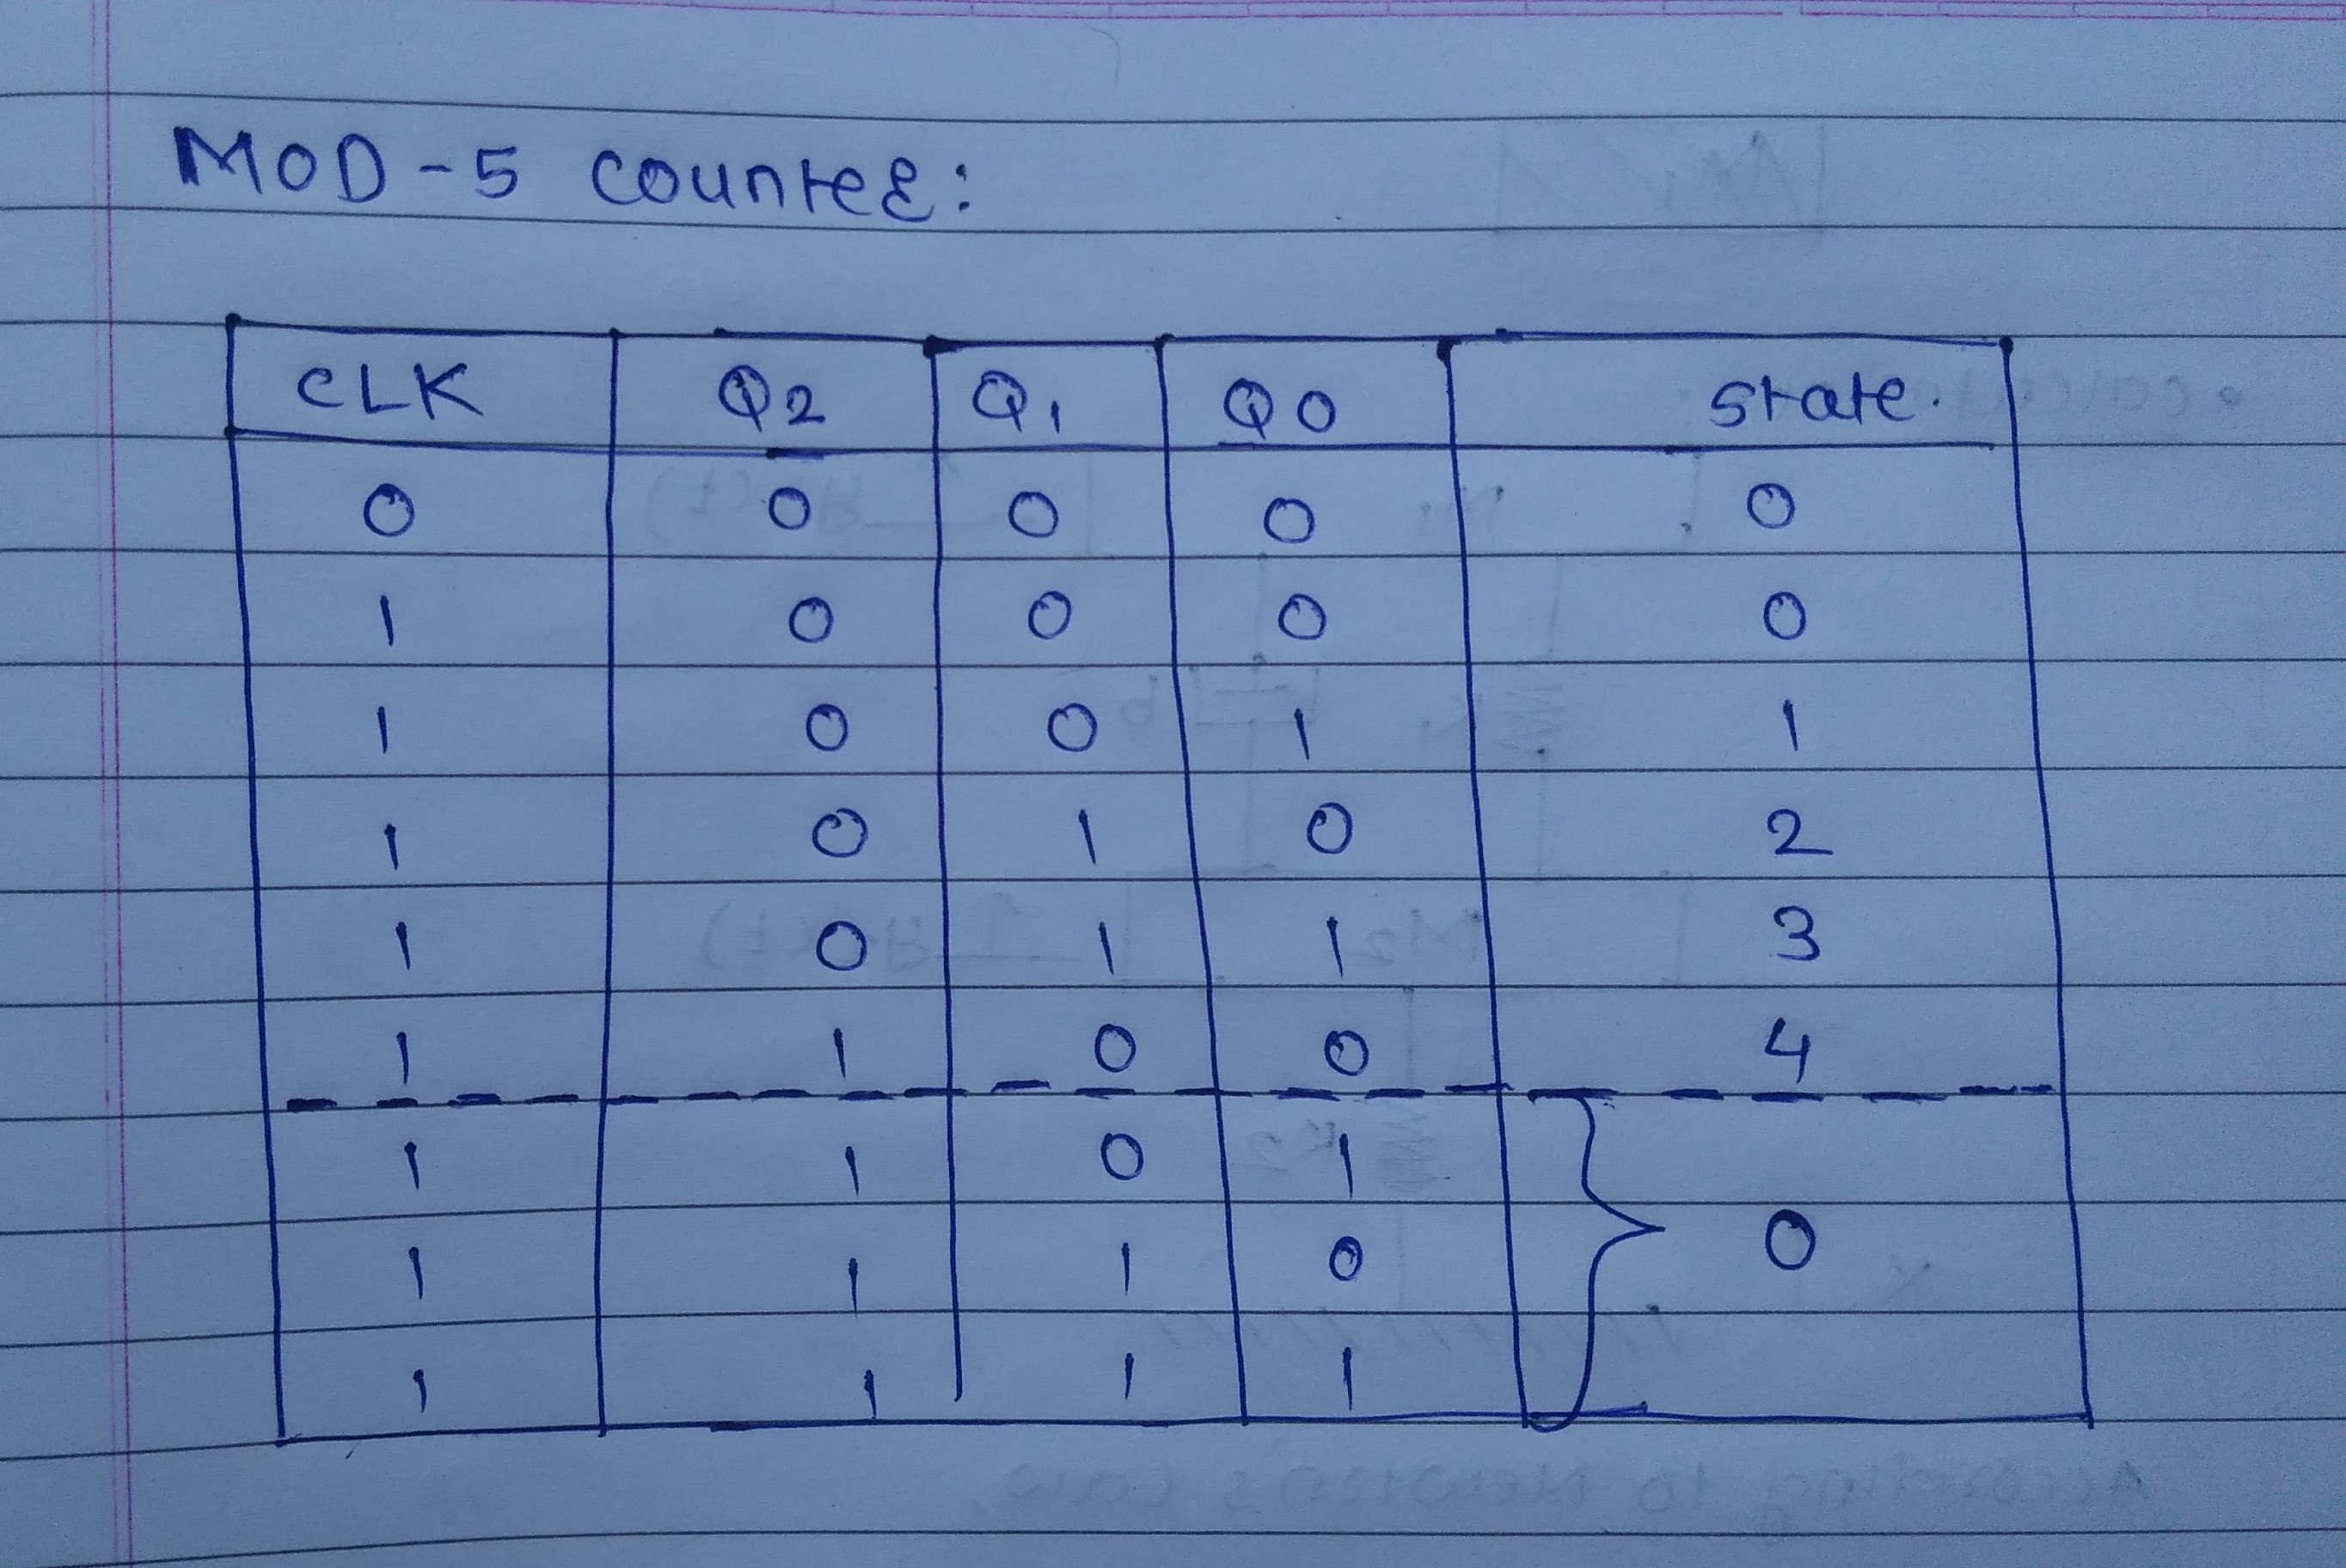 MOD-5 counter:
CLK Q2 Q1 Q0 state.
0 0 0 0 0
1 0 0 0 0
1 0 0 1 1
1 0 1 0 2
1 0 1 1 3
1 1 0 0 4
1 1 0 1
1 1 1 0 0
1 1 1 1